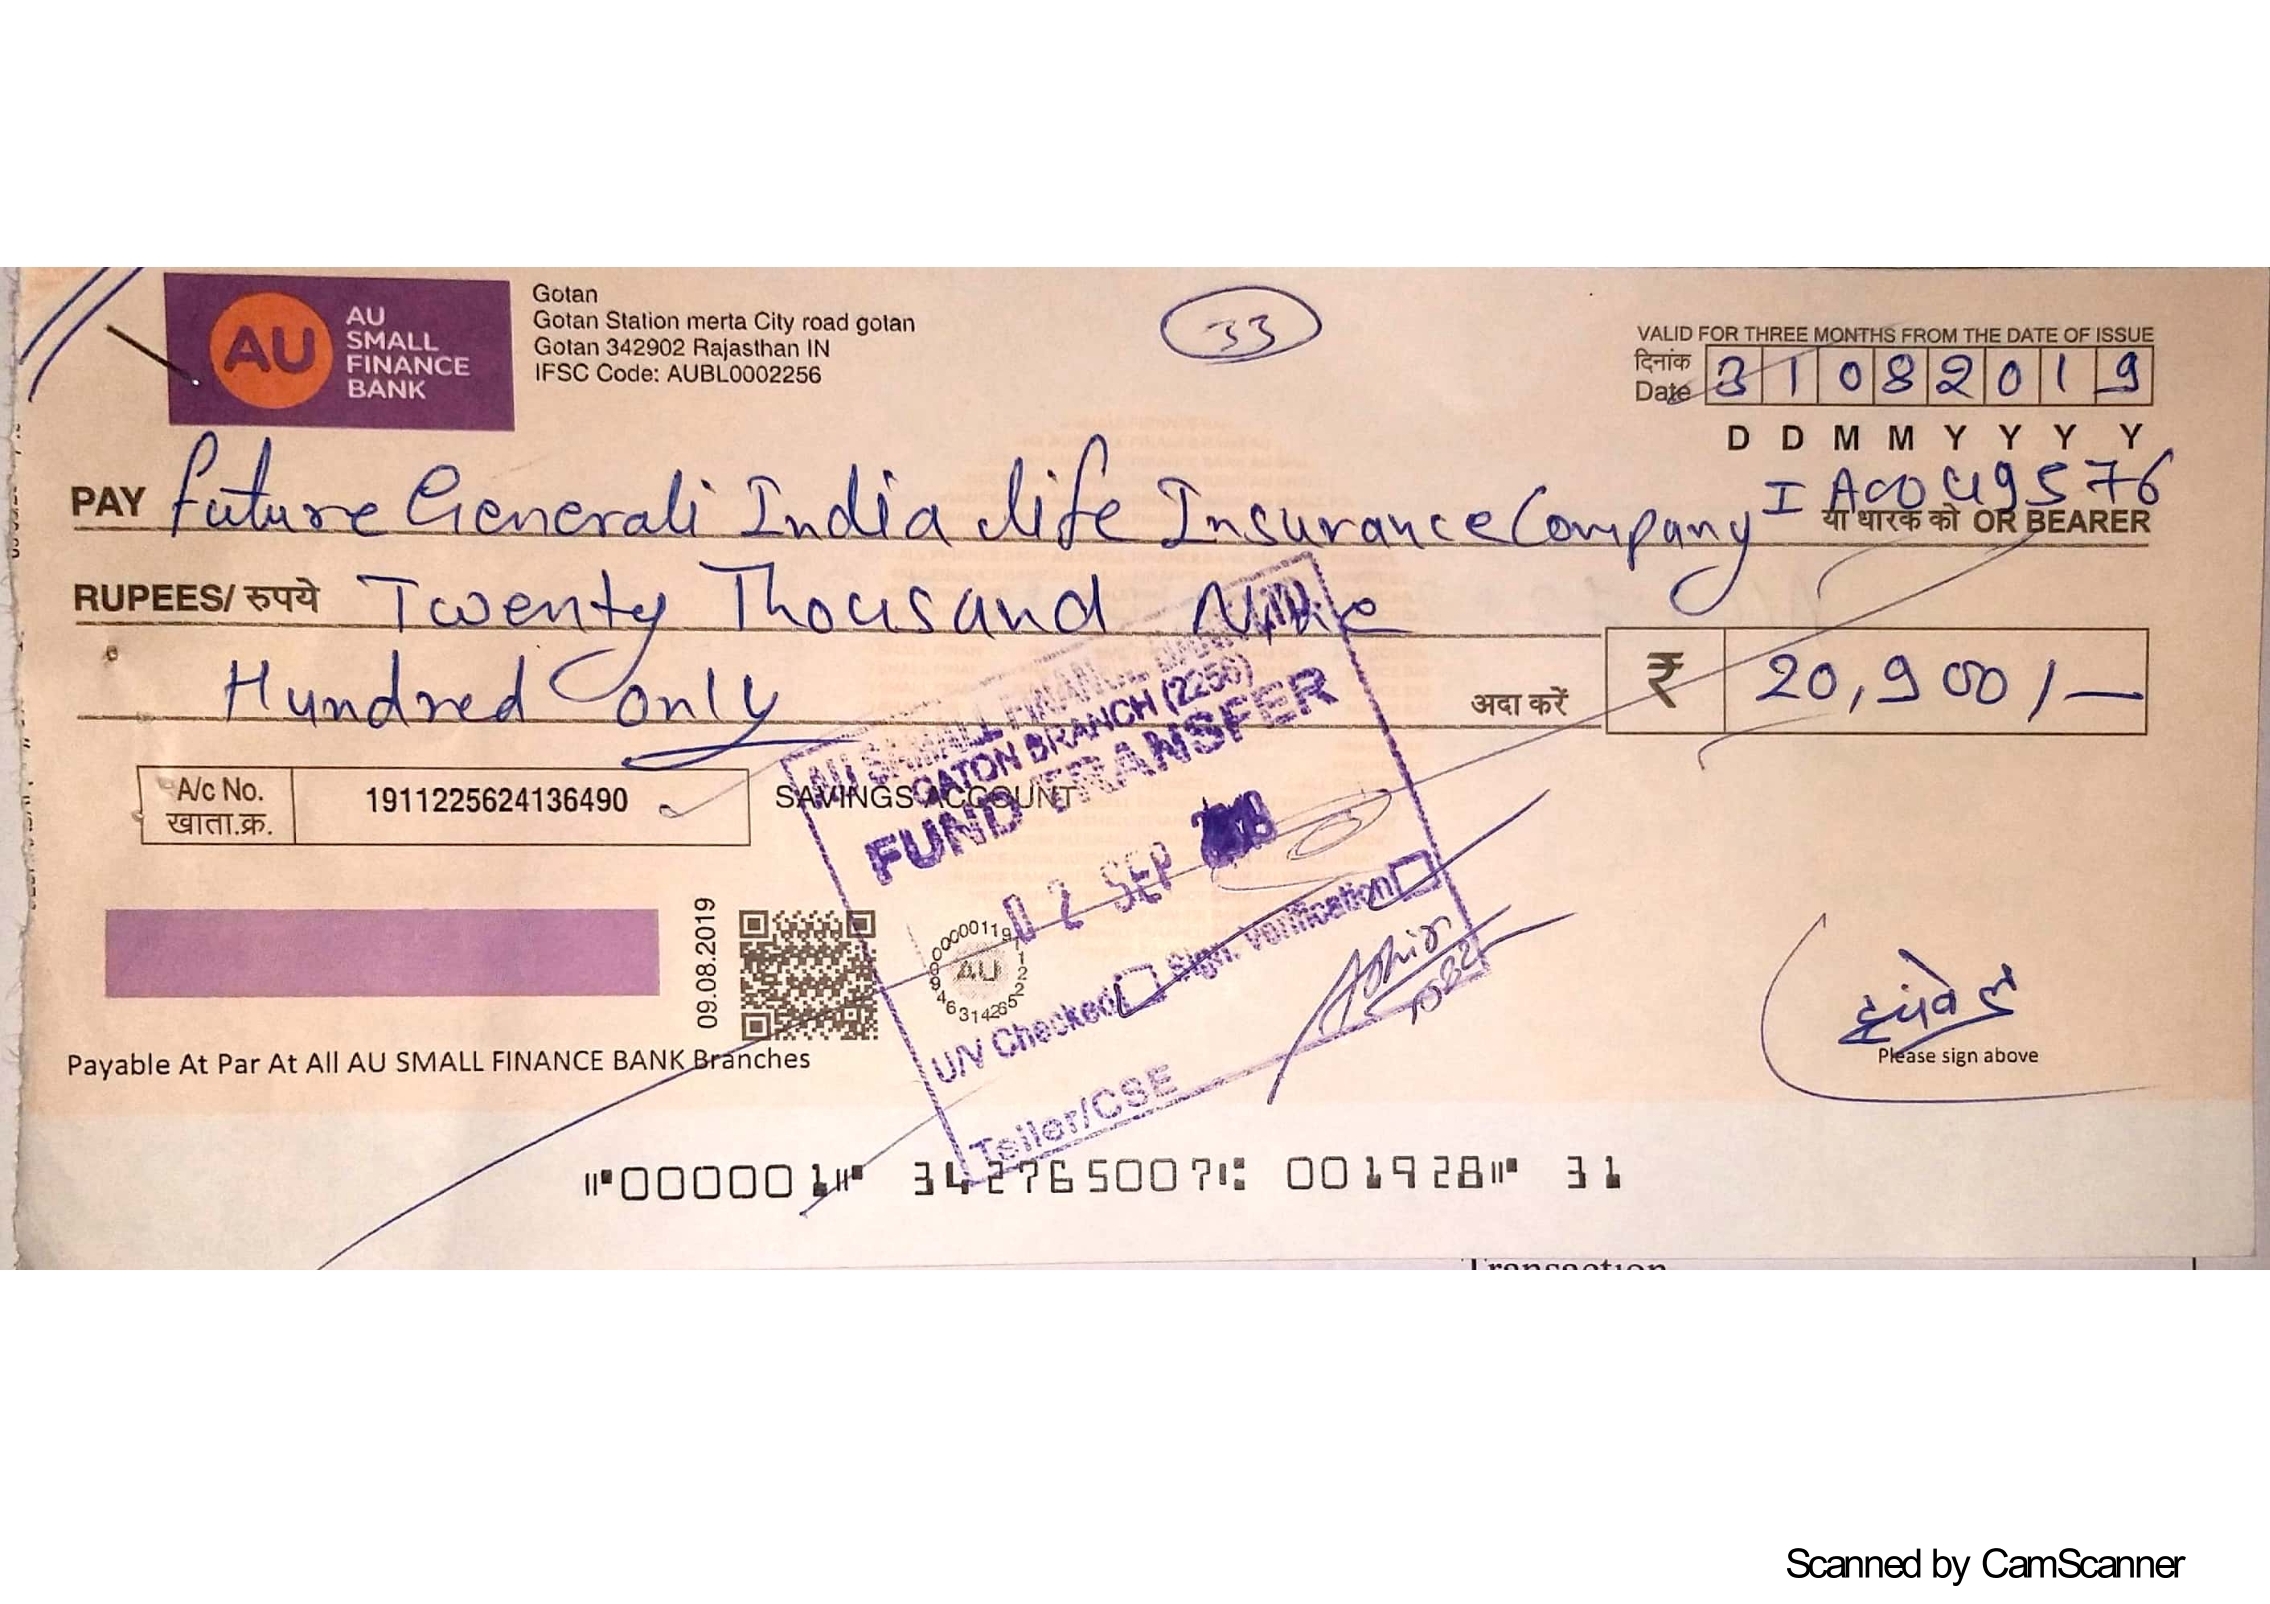 AU
AU
SMALL
FINANCE
BANK
Gotan
Gotan Station merta City road gotan
Gotan 342902 Rajasthan IN
IFSC Code: AUBL0002256
33
VALID FOR THREE MONTHS FROM THE DATE OF ISSUE
दिनांक
Date 31082019
D D M M Y Y Y Y
PAY Future Generali India life Insurance Company I A0049576
या धारक को OR BEARER
RUPEES/ रुपये Twenty Thousand Nine
Hundred only
अदा करें ₹ 20,900/-
A/c No.
खाता.क्र.
1911225624136490
SAVINGS ACCOUNT
AU SAMALL FINANCE BANK LTD
GATON BRANCH (2256)
FUND TRANSFER
02 SEP
U/V Checked Sign. Verification
Teller/CSE
09.08.2019
AU
Payable At Par At All AU SMALL FINANCE BANK Branches
Please sign above
⑈000001⑈ 342765007⑆ 001928⑈ 31
Transaction
Scanned by CamScanner